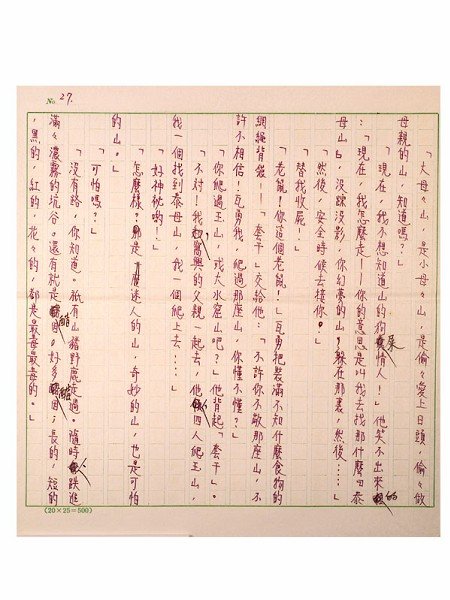 No. 27.
「大母々山，是小母々山，是偷々愛上日頭，偷々做
母親的山，知道嗎？」
「現在，我不想知道山的狗屎情人！」他笑不出來
「現在，我怎麼走──你的意思是叫我去找那什麼泰
母山，沒跡沒影，你幻夢的山，躲在那裏，然後……」
「然後，安全時候去接你。」
「替我收屍！」
「老鼠！你這個老鼠！」瓦勇把裝滿不知什麼食物的
網繩背簍──「奎予」交給他：「不許你不敬那座山，不
許不相信！瓦勇我，爬過那座山，你懂不懂？」
「你爬過玉山，或大水窟山吧？」他背起「奎予」。
「不對！我興的父親一起去，他四人爬玉山，
我一個找到泰母山，我一個爬上去……」
「好神祕喲！」
「怎麼樣？那是魔迷人的山，奇妙的山，也是可怕
的山。」
「可怕嗎？」
「沒有路，你知道。祇有山豬野鹿走過。隨時會跌進
滿々濃霧的坑谷。還有就是。好多；長的，短的
，黑的，紅的，花々的，都是最毒最毒的。」
(20×25=500)